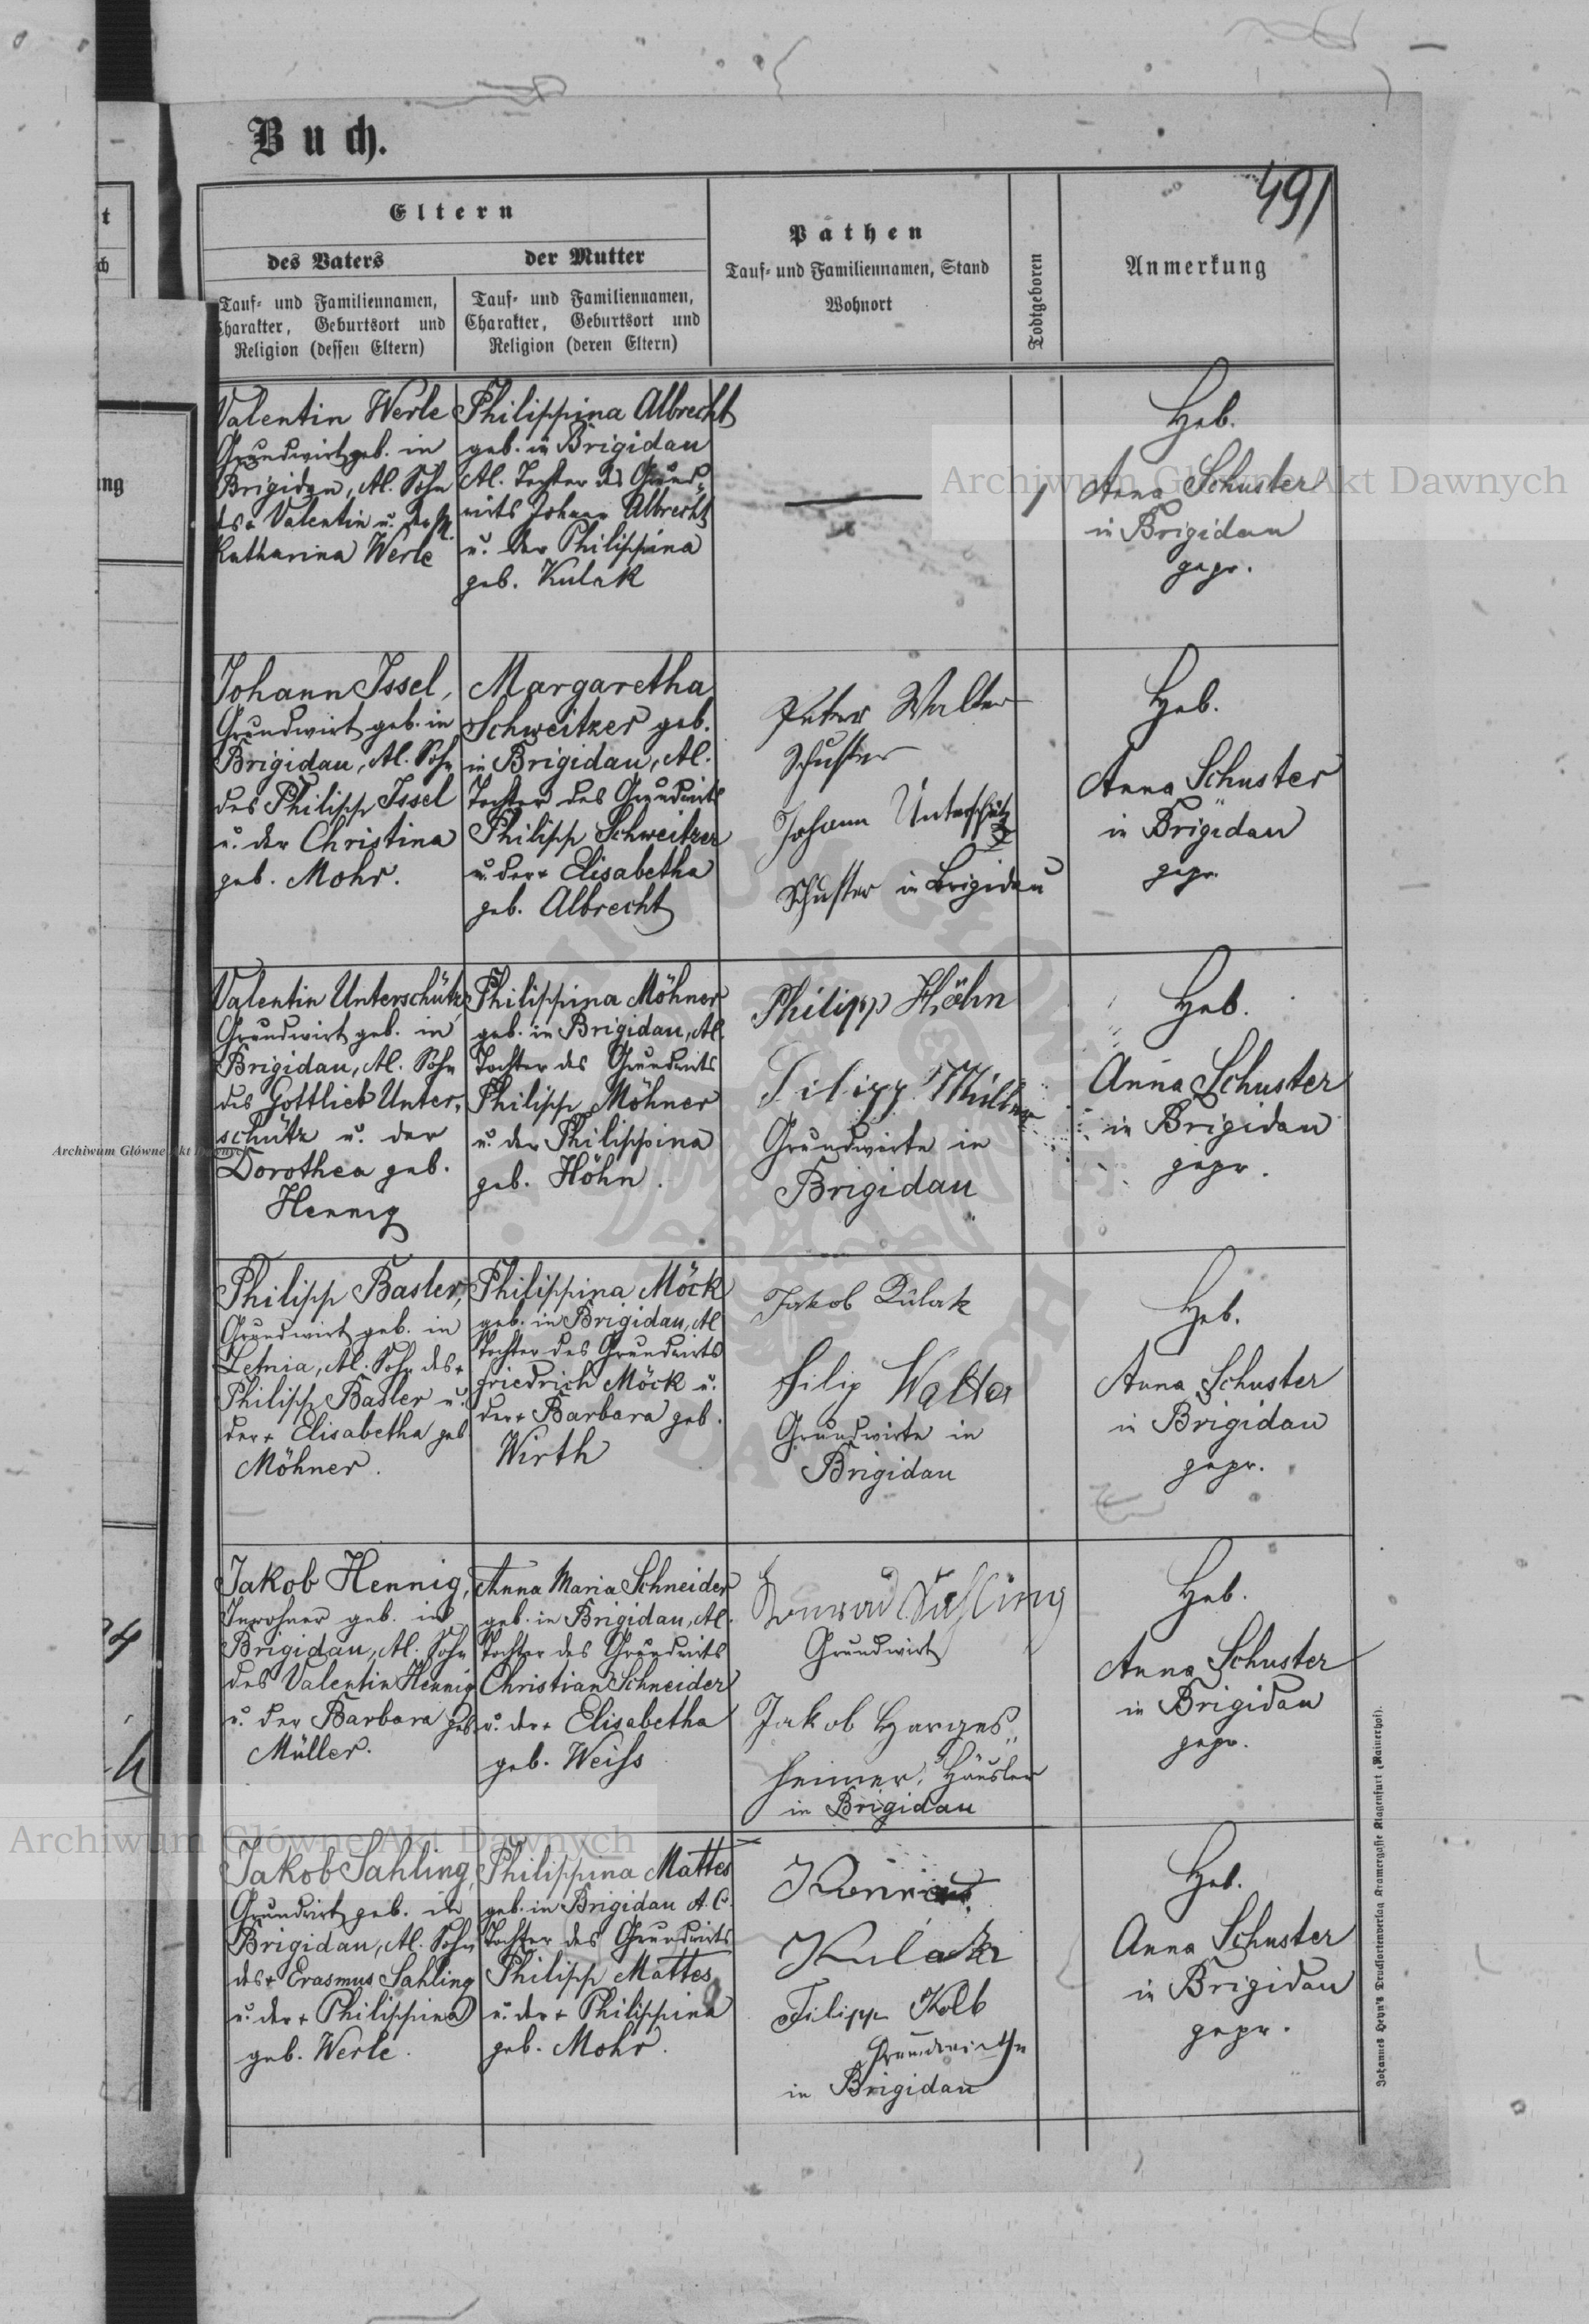 Buch.
491
Eltern
des Vaters
der Mutter
Pathen
Tauf- und Familiennamen, Stand
Wohnort
Todtgeboren
Anmerkung
Tauf- und Familiennamen,
Charakter, Geburtsort und
Religion (dessen Eltern)
Tauf- und Familiennamen,
Charakter, Geburtsort und
Religion (deren Eltern)
Valentin Werle
Grundwirt geb. in
Brigidau, AC. Sohn
des + Valentin u. der
Katharina Werle
Philippina Albrecht
geb. in Brigidau
AC. Tochter des Grund-
wirts Johann Albrecht
u. der Philippina
geb. Kulak
1
Heb.
Anna Schuster
in Brigidau
gepr.
Johann Issel,
Grundwirt geb. in
Brigidau, AC. Sohn
des Philipp Issel
u. der Christina
geb. Mohr.
Margaretha
Schweitzer geb.
in Brigidau, AC.
Tochter des Grundwirts
Philipp Schweitzer
u. der + Elisabetha
geb. Albrecht
Peter Walter
Schuster
Johann Unterschütz
Schuster in Brigidau
Heb.
Anna Schuster
in Brigidau
gepr.
Valentin Unterschütz,
Grundwirt geb. in
Brigidau, AC. Sohn
des Gottlieb Unter-
schütz u. der
Dorothea geb.
Hennig
Philippina Möhner
geb. in Brigidau, AC.
Tochter des Grundwirts
Philipp Möhner
u. der Philippina
geb. Höhn.
Philipp Höhn
Filipp Müller
Grundwirte in
Brigidau
Heb.
Anna Schuster
in Brigidau
gepr.
Philipp Basler,
Grundwirt geb. in
Letnia, AC. Sohn des +
Philipp Basler u.
der + Elisabetha geb
Möhner.
Philippina Möck
geb. in Brigidau, AC
Tochter des Grundwirts
Friedrich Möck u.
der + Barbara geb.
Wirth
Jakob Kulak
Filip Walter
Grundwirte in
Brigidau
Heb.
Anna Schuster
in Brigidau
gepr.
Jakob Hennig,
Inwohner geb. in
Brigidau, AC. Sohn
des Valentin Hennig
u. der Barbara geb
Müller.
Anna Maria Schneider
geb. in Brigidau, AC.
Tochter des Grundwirts
Christian Schneider
u. der + Elisabetha
geb. Weiss
Konrad Sahling
Grundwirt
Jakob Harges-
heimer, Häusler
in Brigidau
Heb.
Anna Schuster
in Brigidau
gepr.
Jakob Sahling,
Grundwirt geb. in
Brigidau, AC. Sohn
des + Erasmus Sahling
u. der + Philippina
geb. Werle.
Philippina Mattes
geb. in Brigidau A.C.
Tochter des Grundwirts
Philipp Mattes
u. der + Philippina
geb. Mohr.
Kulak
Filipp Kolb
Grundwirthe
in Brigidau
Heb.
Anna Schuster
in Brigidau
gepr.
Johannes Heyn's Drucksortenverlag Kramergasse Klagenfurt (Rainerhof).
Archiwum Główne Akt Dawnych
Archiwum Główne Akt Dawnych
Archiwum Główne Akt Dawnych